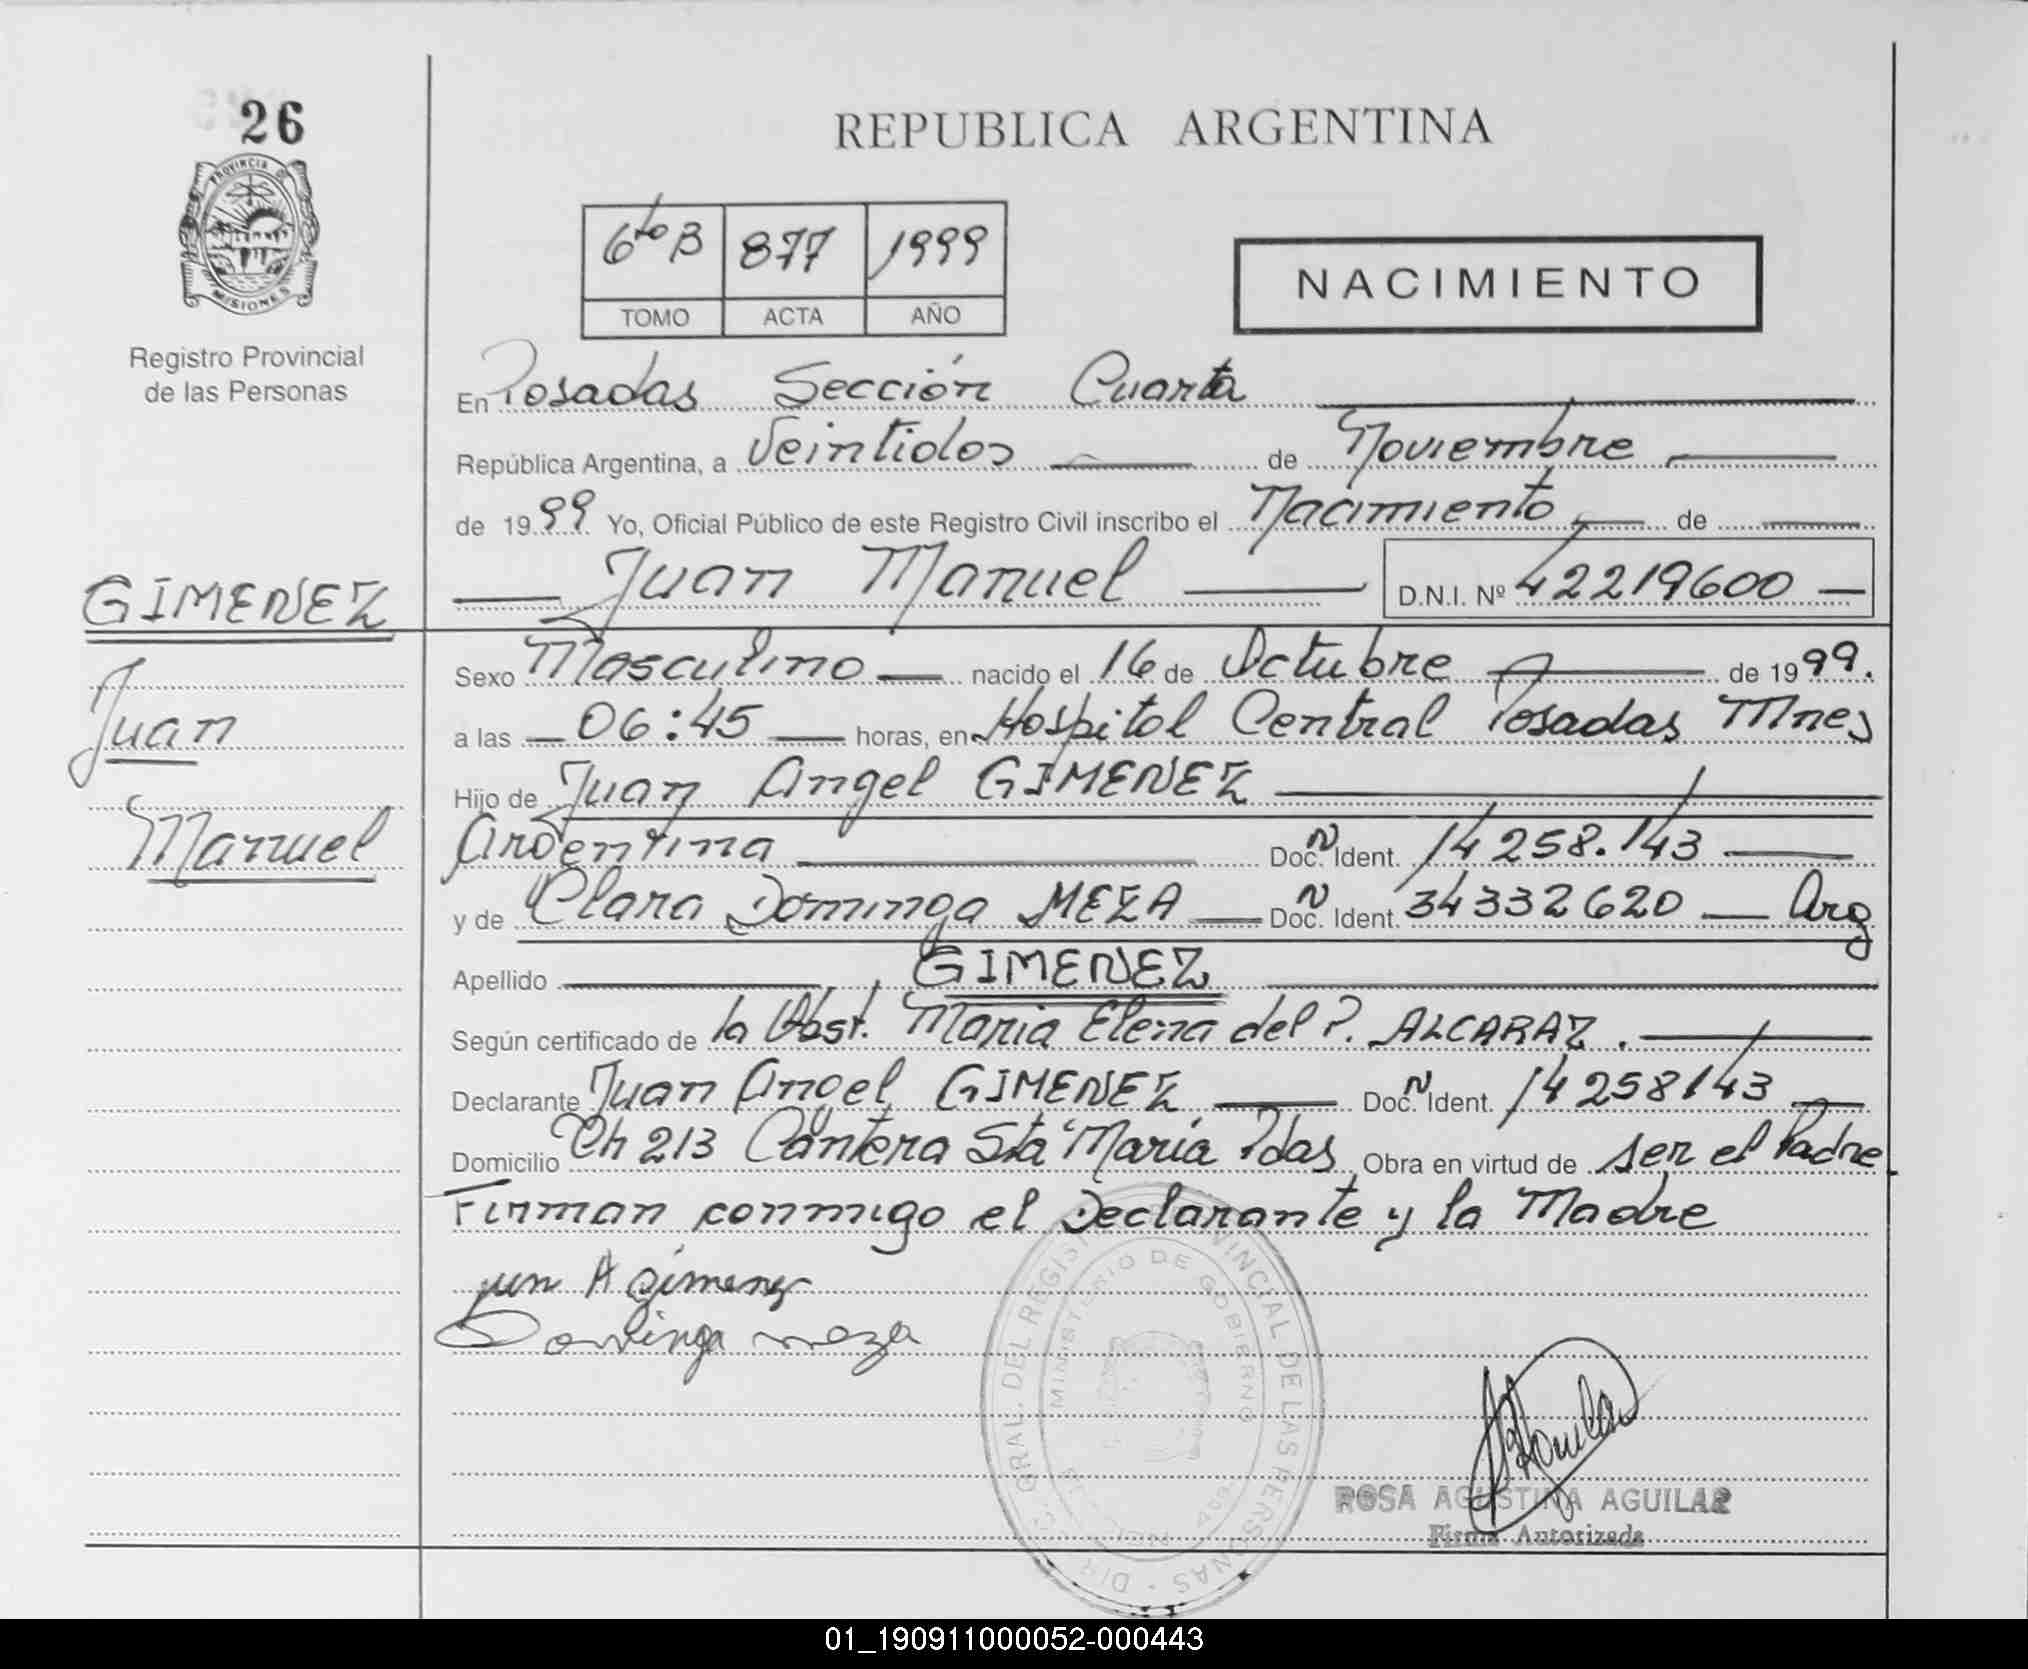 26
PROVINCIA DE
MISIONES
Registro Provincial
de las Personas
GIMENEZ
Juan
Manuel
REPUBLICA ARGENTINA
6to B 877 1999
TOMO ACTA AÑO
NACIMIENTO
En Posadas Sección Cuarta
República Argentina, a Veintidos de Noviembre
de 1999 Yo, Oficial Público de este Registro Civil inscribo el Nacimiento de
Juan Manuel D.N.I. Nº 42219600
Sexo Masculino nacido el 16 de Octubre de 1999.
a las 06:45 horas, en Hospital Central Posadas Mnes
Hijo de Juan Angel GIMENEZ
Argentina Doc. N Ident. 14258.143
y de Clara Dominga MEZA Doc. N Ident. 34332620 Arg
Apellido GIMENEZ
Según certificado de la Obst. Maria Elena del P. ALCARAZ.
Declarante Juan Angel GIMENEZ Doc. N Ident. 14258143
Domicilio Ch 213 Cantera Sta Maria Pdas Obra en virtud de ser el Padre
Firman conmigo el Declarante y la Madre
jun A gimenez
Dominga meza
DIR. GRAL. DEL REGISTRO PROVINCIAL DE LAS PERSONAS
MINISTERIO DE GOBIERNO
ROSA AGUSTINA AGUILAR
Firma Autorizada
01_190911000052-000443